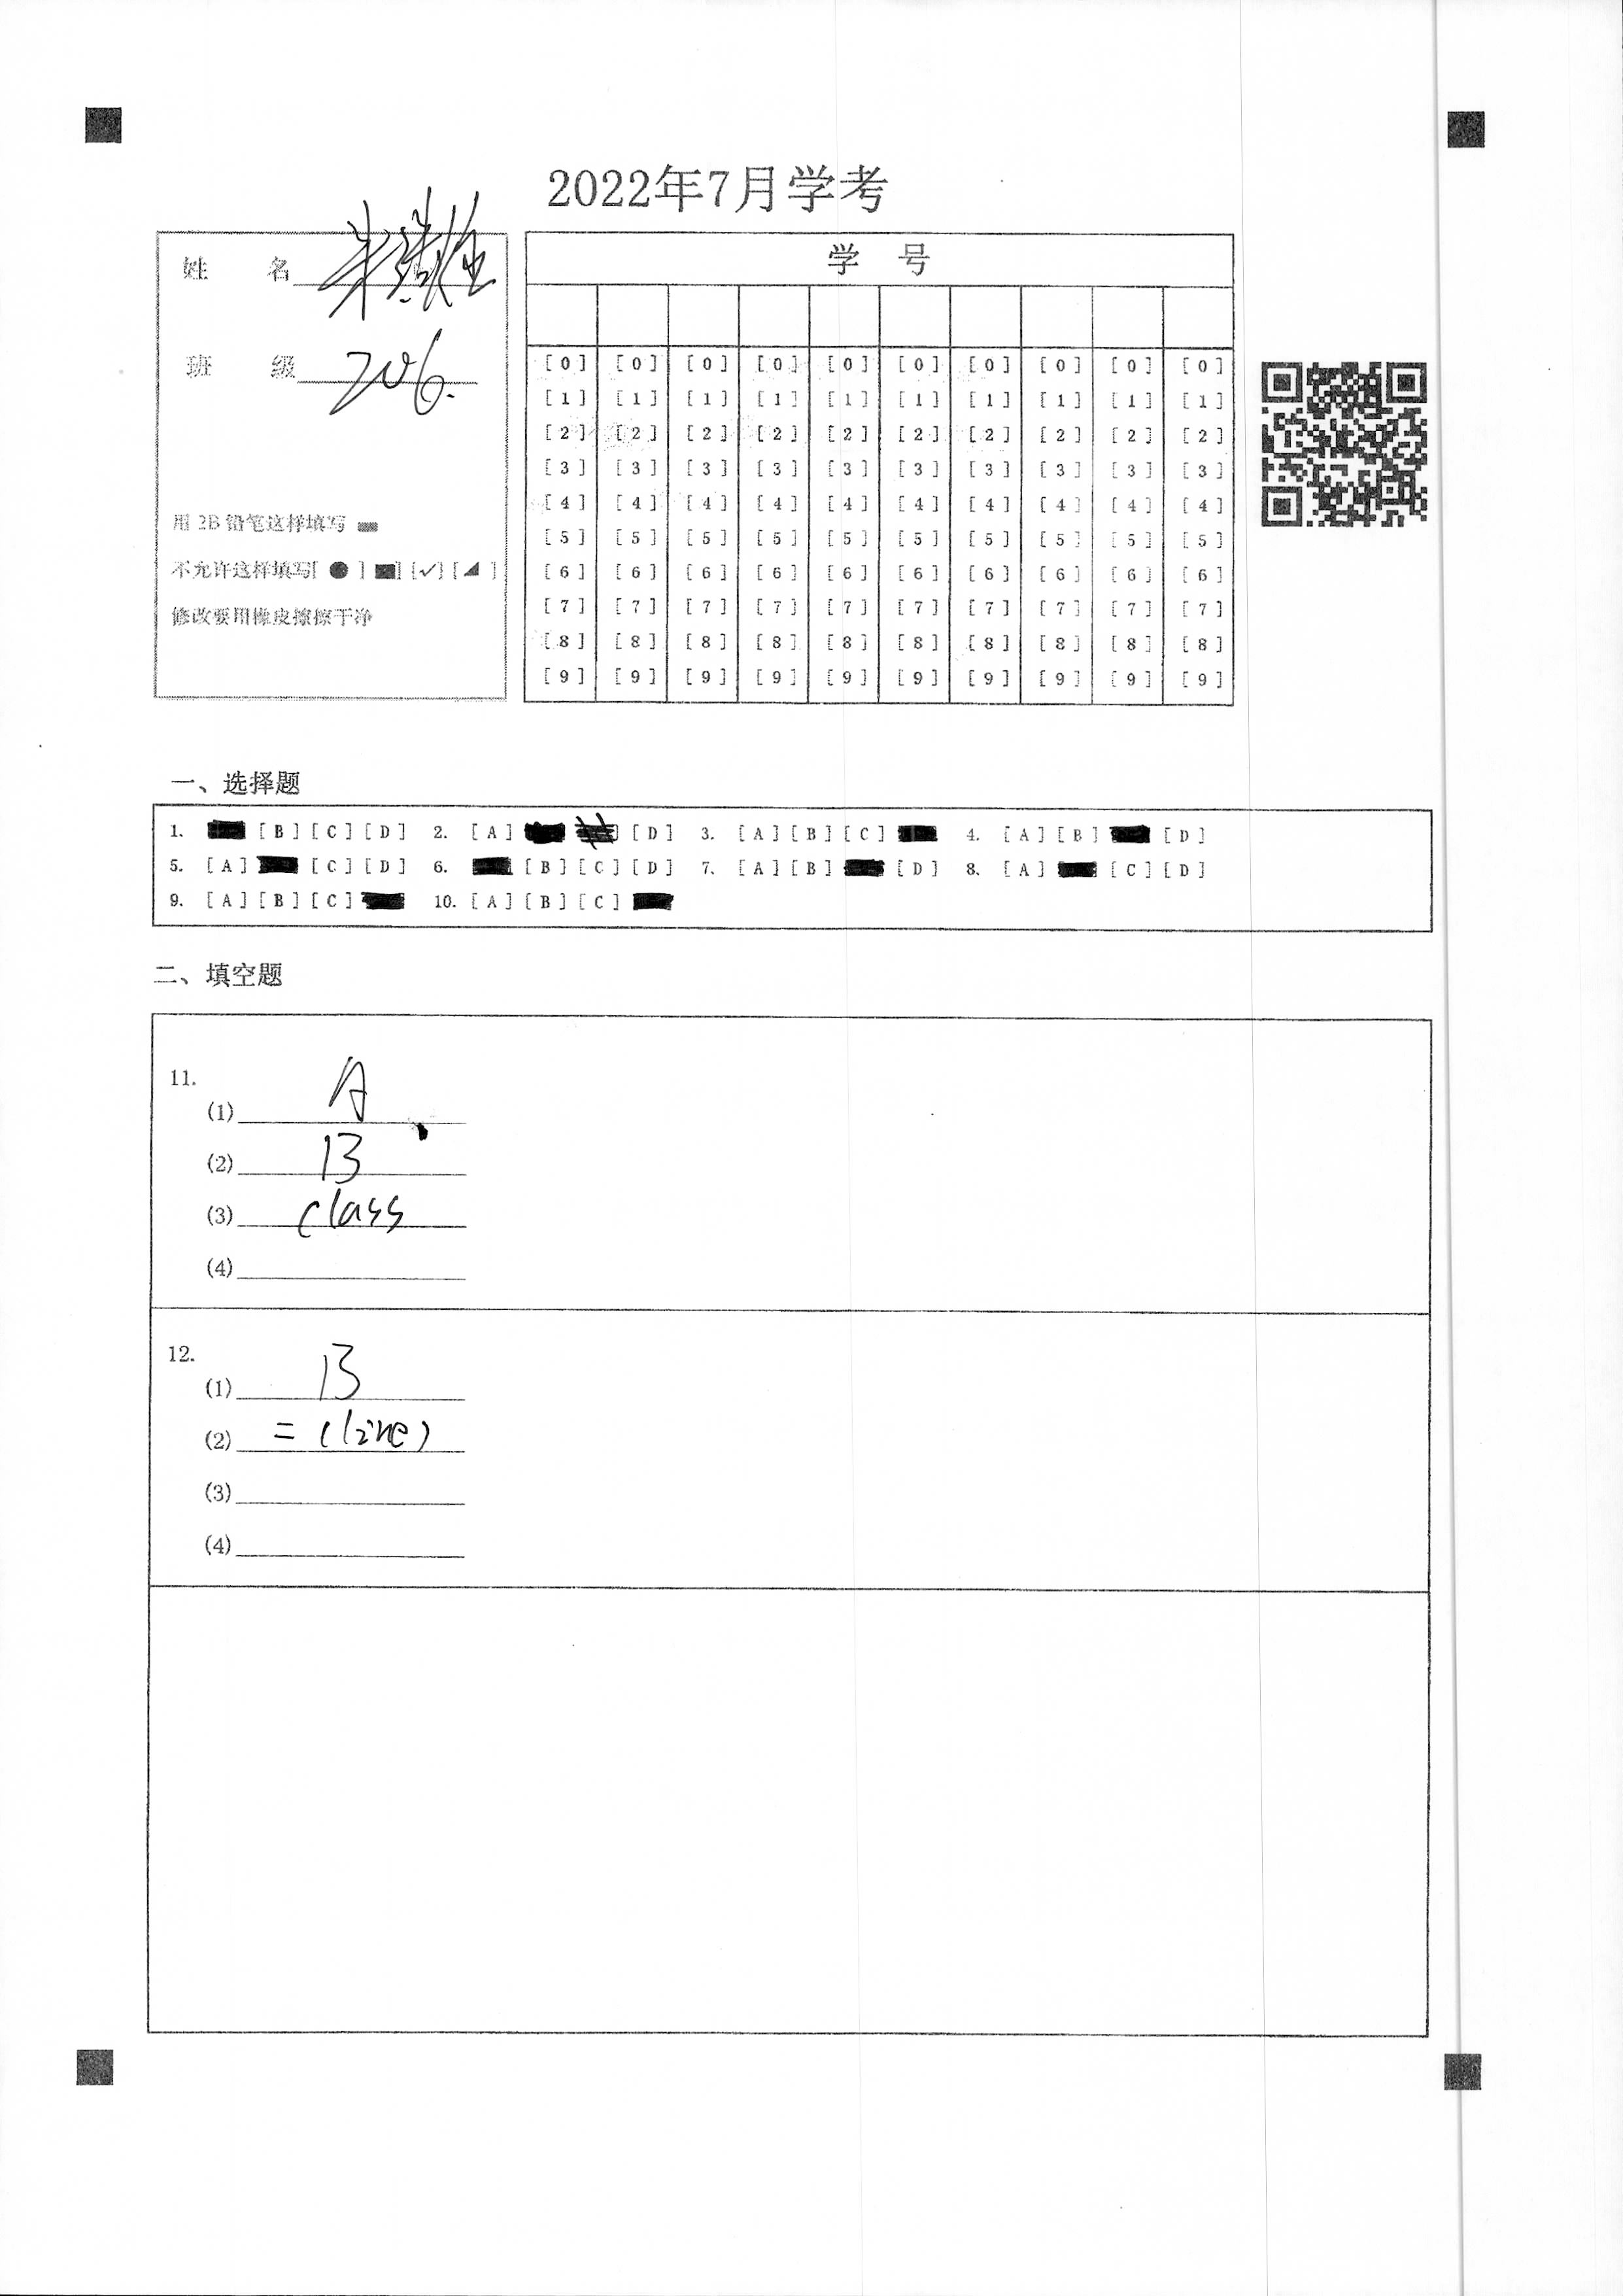 2022年7月学考
姓 名
班 级 206.
用 2B 铅笔这样填写
不允许这样填写[ ● ] [■] [✓] [◢ ]
修改要用橡皮擦擦干净
学 号
[0] [0] [0] [0] [0] [0] [0] [0] [0] [0]
[1] [1] [1] [1] [1] [1] [1] [1] [1] [1]
[2] [2] [2] [2] [2] [2] [2] [2] [2] [2]
[3] [3] [3] [3] [3] [3] [3] [3] [3] [3]
[4] [4] [4] [4] [4] [4] [4] [4] [4] [4]
[5] [5] [5] [5] [5] [5] [5] [5] [5] [5]
[6] [6] [6] [6] [6] [6] [6] [6] [6] [6]
[7] [7] [7] [7] [7] [7] [7] [7] [7] [7]
[8] [8] [8] [8] [8] [8] [8] [8] [8] [8]
[9] [9] [9] [9] [9] [9] [9] [9] [9] [9]
一、选择题
1. [B] [C] [D] 2. [A] [D] 3. [A] [B] [C] 4. [A] [B] [D]
5. [A] [C] [D] 6. [B] [C] [D] 7. [A] [B] [D] 8. [A] [C] [D]
9. [A] [B] [C] 10. [A] [B] [C]
二、填空题
11.
(1) A
(2) B
(3) class
(4)
12.
(1) B
(2) = (line)
(3)
(4)